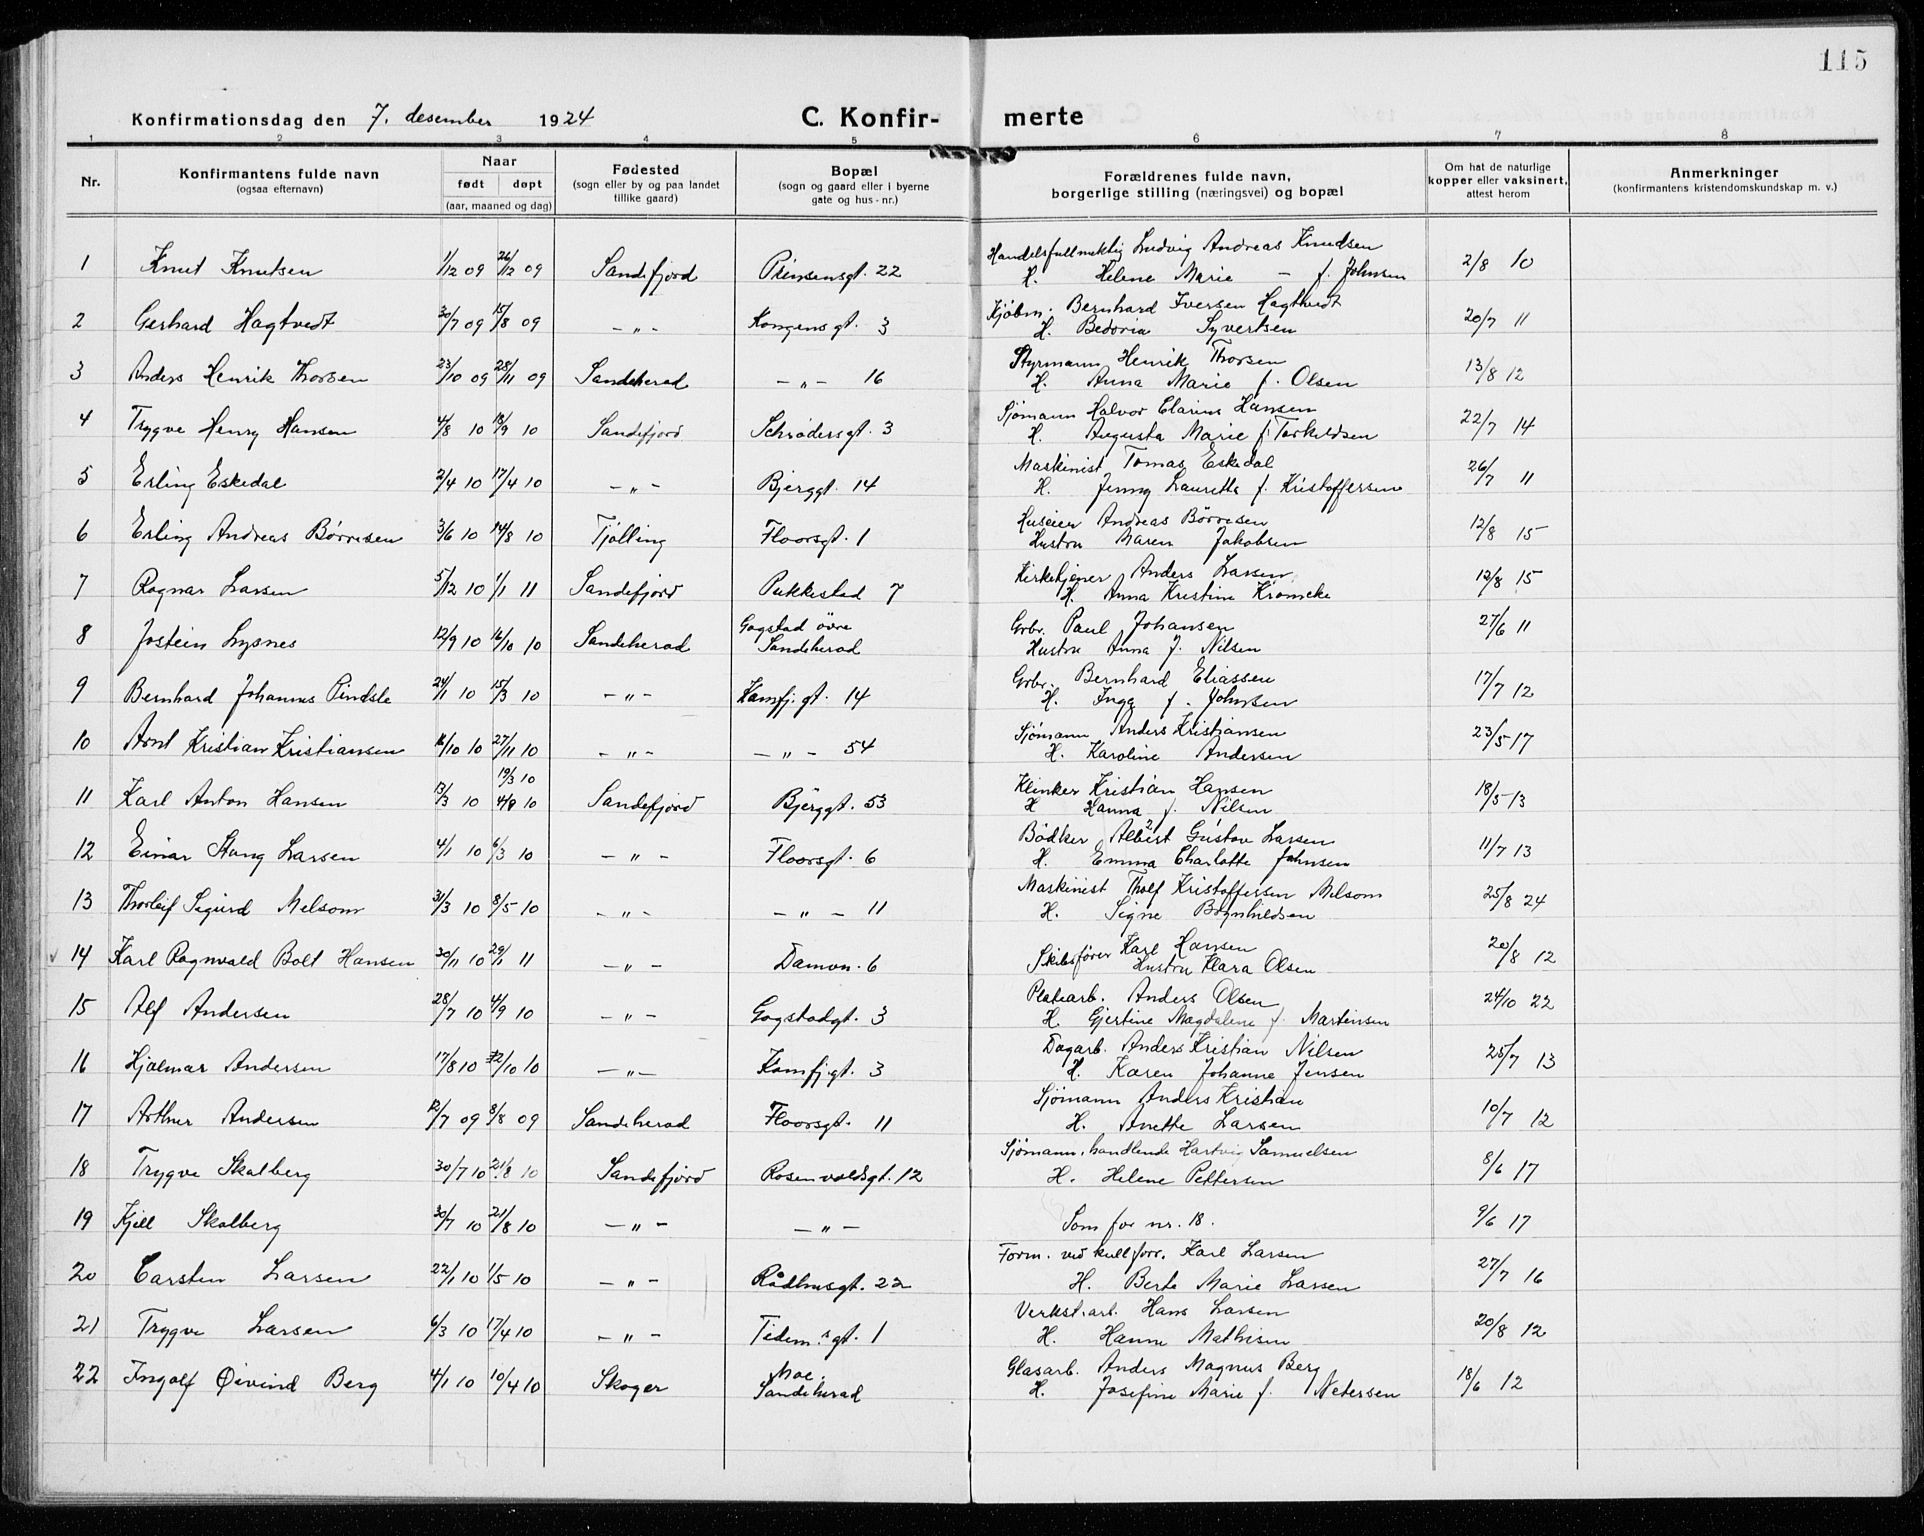 115
Konfirmationsdag den 7. desember 1924 C. Konfir- merte
1 2 3 4 5 6 7 8
Nr. Konfirmantens fulde navn (ogsaa efternavn) Naar født døpt (aar, maaned og dag) Fødested (sogn eller by og paa landet tillike gaard) Bopæl (sogn og gaard eller i byerne gate og hus-nr.) Forældrenes fulde navn, borgerlige stilling (næringsvei) og bopæl Om hat de naturlige kopper eller vaksinert, attest herom Anmerkninger (konfirmantens kristendomskundskap m. v.)
1 Knut Knutsen 1/12 09 26/12 09 Sandefjord Prinsensgt. 22 Handelsfullmektig Ludvig Andreas Knudsen 2/8 10
H. Helene Marie - f. Johnsen
2 Gerhard Hagtvedt 30/7 09 15/8 09 -"- Kongensgt. 3 Kjøbm. Bernhard Iversen Hagtvedt 20/7 11
H. Bedoria Syvertsen
3 Anders Henrik Thorsen 23/10 09 28/11 09 Sandeherad -"- 16 Styrmann Henrik Thorsen 13/8 12
H. Anna Marie f. Olsen
4 Trygve Henry Hansen 4/8 10 18/9 10 Sandefjord Schrødersgt. 3 Sjømann Halvor Clarius Hansen 22/7 14
H. Augusta Marie f. Torkildsen
5 Erling Eskedal 2/4 10 17/4 10 -"- Bjerggt. 14 Maskinist Tomas Eskedal 26/7 11
H. Jenny Lauretta f. Kristoffersen
6 Erling Andreas Børresen 3/6 10 14/8 10 Tjølling Floorsgt. 1 Huseier Andreas Børresen 12/8 15
Hustru Maren Jakobsen
7 Ragnar Larsen 5/12 10 1/1 11 Sandefjord Pukkestad 7 Kirketjener Anders Larsen 12/8 15
H. Anna Kristine Kromcke
8 Jostein Lysnes 12/9 10 16/10 10 Sandeherad Gogstad övre Sandeherad Grbr. Paul Johansen 27/6 11
Hustru Anna f. Nilsen
9 Bernhard Johannes Pindsle 24/1 10 15/3 10 -"- Kamfj.gt. 14 Grbr. Bernhard Eliassen 17/7 12
H. Inga f. Johnsen
10 Arnt Kristian Kristiansen 16/10 10 27/11 10 -"- -"- 54 Sjømann Anders Kristiansen 23/5 17
H. Karoline Andersen
11 Karl Anton Hansen 13/3 10 19/3 10 4/9 10 Sandefjord Bjerggt. 53 Klinker Kristian Hansen 18/5 13
H Hanna f. Nilsen
12 Einar Stang Larsen 4/1 10 6/3 10 -"- Floorsgt. 6 Bødker Albert Gustav Larsen 11/7 13
H. Emma Charlotte Johnsen
13 Thorleif Sigurd Melsom 31/3 10 8/5 10 -"- -"- 11 Maskinist Tholf Kristoffersen Melsom 25/8 24
H. Signe Brynhildsen
14 Karl Ragnvald Bolt Hansen 30/11 10 29/1 11 -"- Damvn. 6 Skibsfører Karl Hansen 20/8 12
Hustru Klara Olsen
15 Alf Andersen 28/7 10 4/9 10 -"- Gogstadgt. 3 Platearb. Anders Olsen 24/10 22
H. Gjertine Magdalene f. Martinsen
16 Hjalmar Andersen 17/8 10 2/10 10 -"- Kamfj.gt. 3 Dagarb. Anders Kristian Nilsen 25/7 13
H. Karen Johanne Jensen
17 Arthur Andersen 12/7 09 8/8 09 Sandeherad Floorsgt. 11 Sjømann Anders Kristian 10/7 12
H. Anette Larsen
18 Trygve Skalberg 30/7 10 21/8 10 Sandefjord Rosenvoldsgt. 12 Sjømann, handlende Hartvig Samuelsen 8/6 17
H. Helene Pettersen
19 Kjell Skalberg 30/7 10 21/8 10 -"- -"- Som for nr. 18. 9/6 17
20 Carsten Larsen 22/1 10 1/5 10 -"- Rådhusgt. 22 Form. ved kullforr. Karl Larsen 27/7 16
H. Berte Marie Larsen
21 Trygve Larsen 6/3 10 17/4 10 -"- Tidem.sgt. 1 Verkst.arb. Hans Larsen 20/8 12
H. Hanne Mathisen
22 Ingolf Øivind Berg 4/1 10 10/4 10 Skoger Moe, Sandeherad Glasarb. Anders Magnus Berg 18/6 12
H. Josefine Marie f. Petersen